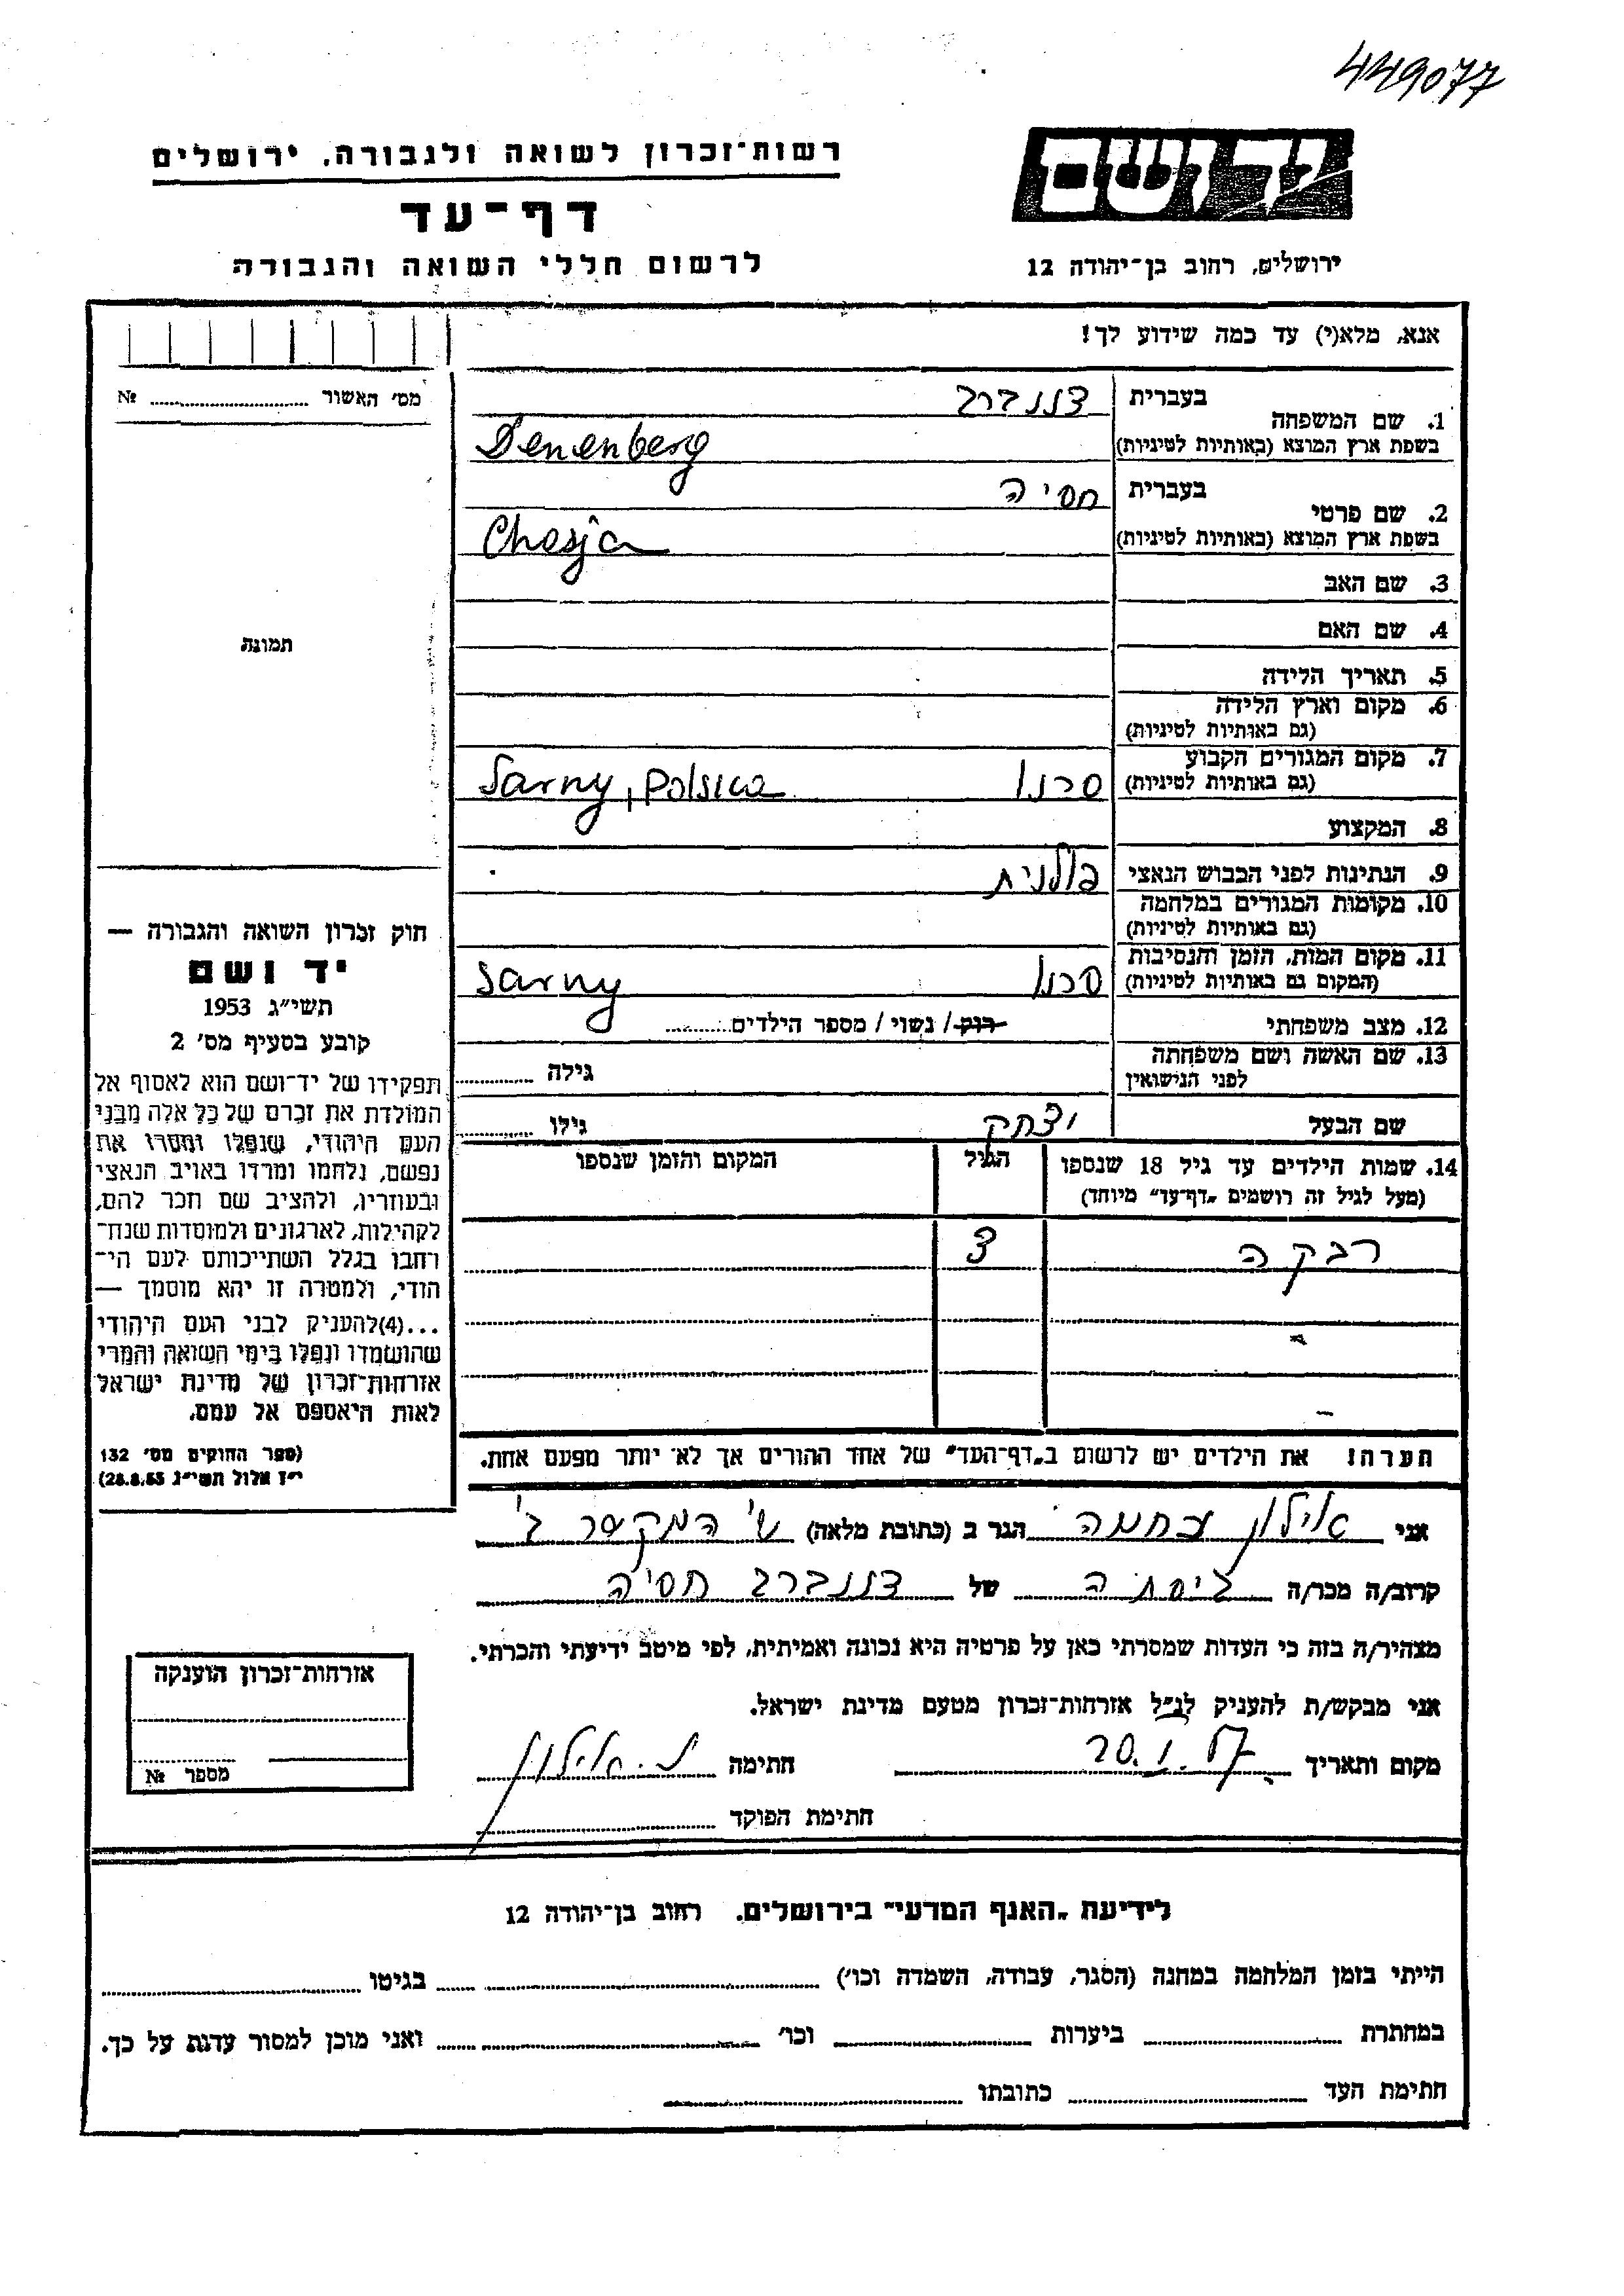 449077
יד ושם
רשות־זכרון לשואה ולגבורה, ירושלים
דף־עד
לרשום חללי השואה והגבורה
ירושלים, רחוב בן־יהודה 12
אנא, מלא(י) עד כמה שידוע לך!
מס׳ האשור №
תמונה
1. שם המשפחה בעברית דננברג
בשפת ארץ המוצא (באותיות לטיניות) Denenberg
2. שם פרטי בעברית חסיה
בשפת ארץ המוצא (באותיות לטיניות) Chesja
3. שם האב
4. שם האם
5. תאריך הלידה
6. מקום וארץ הלידה
(גם באותיות לטיניות)
7. מקום המגורים הקבוע סרני Sarny, Polska
(גם באותיות לטיניות)
8. המקצוע
9. הנתינות לפני הכבוש הנאצי פולנית
10. מקומות המגורים במלחמה
(גם באותיות לטיניות)
11. מקום המות, הזמן והנסיבות סרני Sarny
(המקום גם באותיות לטיניות)
12. מצב משפחתי רוק / נשוי / מספר הילדים
13. שם האשה ושם משפחתה גילה
לפני הנישואין
שם הבעל יצחק גילו
14. שמות הילדים עד גיל 18 שנספו הגיל המקום והזמן שנספו
(מעל לגיל זה רושמים „דף־עד״ מיוחד)
רבקה 3
הערה! את הילדים יש לרשום ב„דף־העד״ של אחד ההורים אך לא יותר מפעם אחת.
חוק זכרון השואה והגבורה —
יד ושם
תשי״ג 1953
קובע בסעיף מס׳ 2
תפקידו של יד־ושם הוא לאסוף אל
המולדת את זכרם של כל אלה מבני
העם היהודי, שנפלו ומסרו את
נפשם, נלחמו ומרדו באויב הנאצי
ובעוזריו, ולהציב שם וזכר להם,
לקהילות, לארגונים ולמוסדות שנח־
רחבו בגלל השתייכותם לעם הי־
הודי, ולמטרה זו יהא מוסמך —
...(4)להעניק לבני העם היהודי
שהושמדו ונפלו בימי השואה והמרי
אזרחות־זכרון של מדינת ישראל
לאות היאספם אל עמם.
(ספר החוקים מס׳ 132
י״ז אלול תשי״ג 28.8.53)
אני אילון נחמה הגר ב (כתובת מלאה)
קרוב/ה מכר/ה של דננברג חסיה
מצהיר/ה בזה כי העדות שמסרתי כאן על פרטיה היא נכונה ואמיתית, לפי מיטב ידיעתי והכרתי.
אני מבקש/ת להעניק לנ״ל אזרחות־זכרון מטעם מדינת ישראל.
מקום ותאריך 20.1.57 חתימה נ. אילון
חתימת הפוקד
אזרחות־זכרון הוענקה
מספר №
לידיעת „האגף המדעי״ בירושלים. רחוב בן־יהודה 12
הייתי בזמן המלחמה במחנה (הסגר, עבודה, השמדה וכו׳) בגיטו
במחתרת ביערות וכו׳ ואני מוכן למסור עדות על כך.
חתימת העד כתובתו